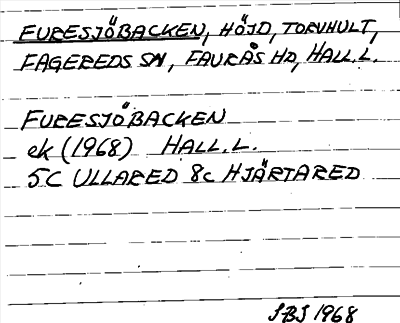 FURESJÖBACKEN, HÖJD, TORVHULT,
FAGEREDS SN, FAURÅS HD, HALL.L.
FURESJÖBACKEN
ek (1968) HALL.L.
5C ULLARED 8c HJÄRTARED
SBJ 1968